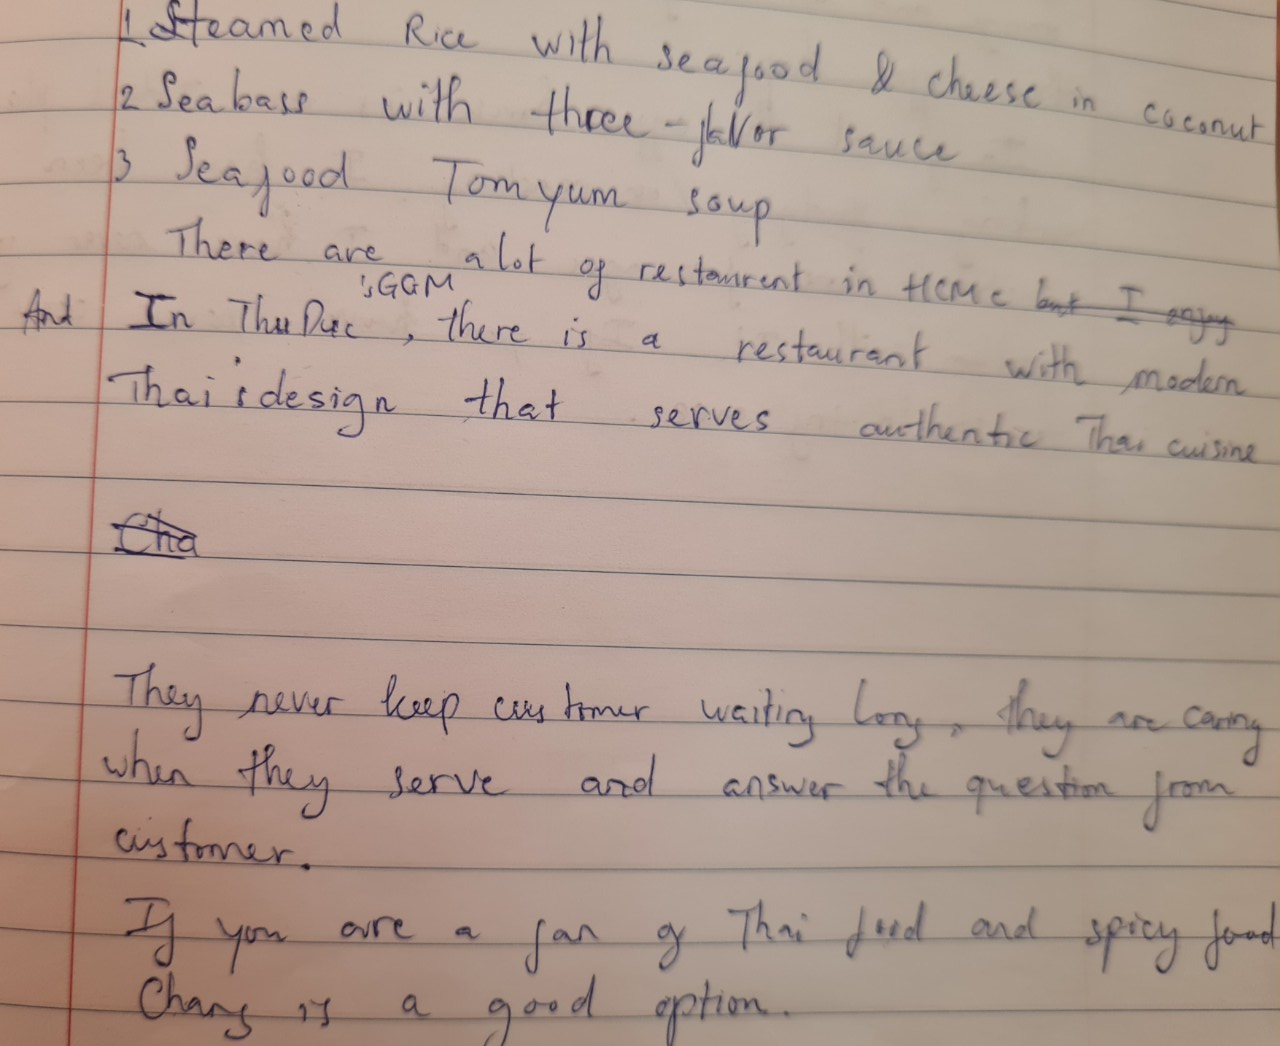 1 Steamed Rice with seafood & cheese in coconut
2 Seabass with three-flavor sauce
3 Seafood Tom yum soup
There are alot of restaurent in HCMC but I enjoy
'sGGM
And In Thu Duc, there is a restaurant with modern
Thai's design that serves authentic Thai cuisine
Cha
They never keep customer waiting long, they are caring
when they serve and answer the question from
customer.
If you are a fan of Thai food and spicy food
Chang is a good option.